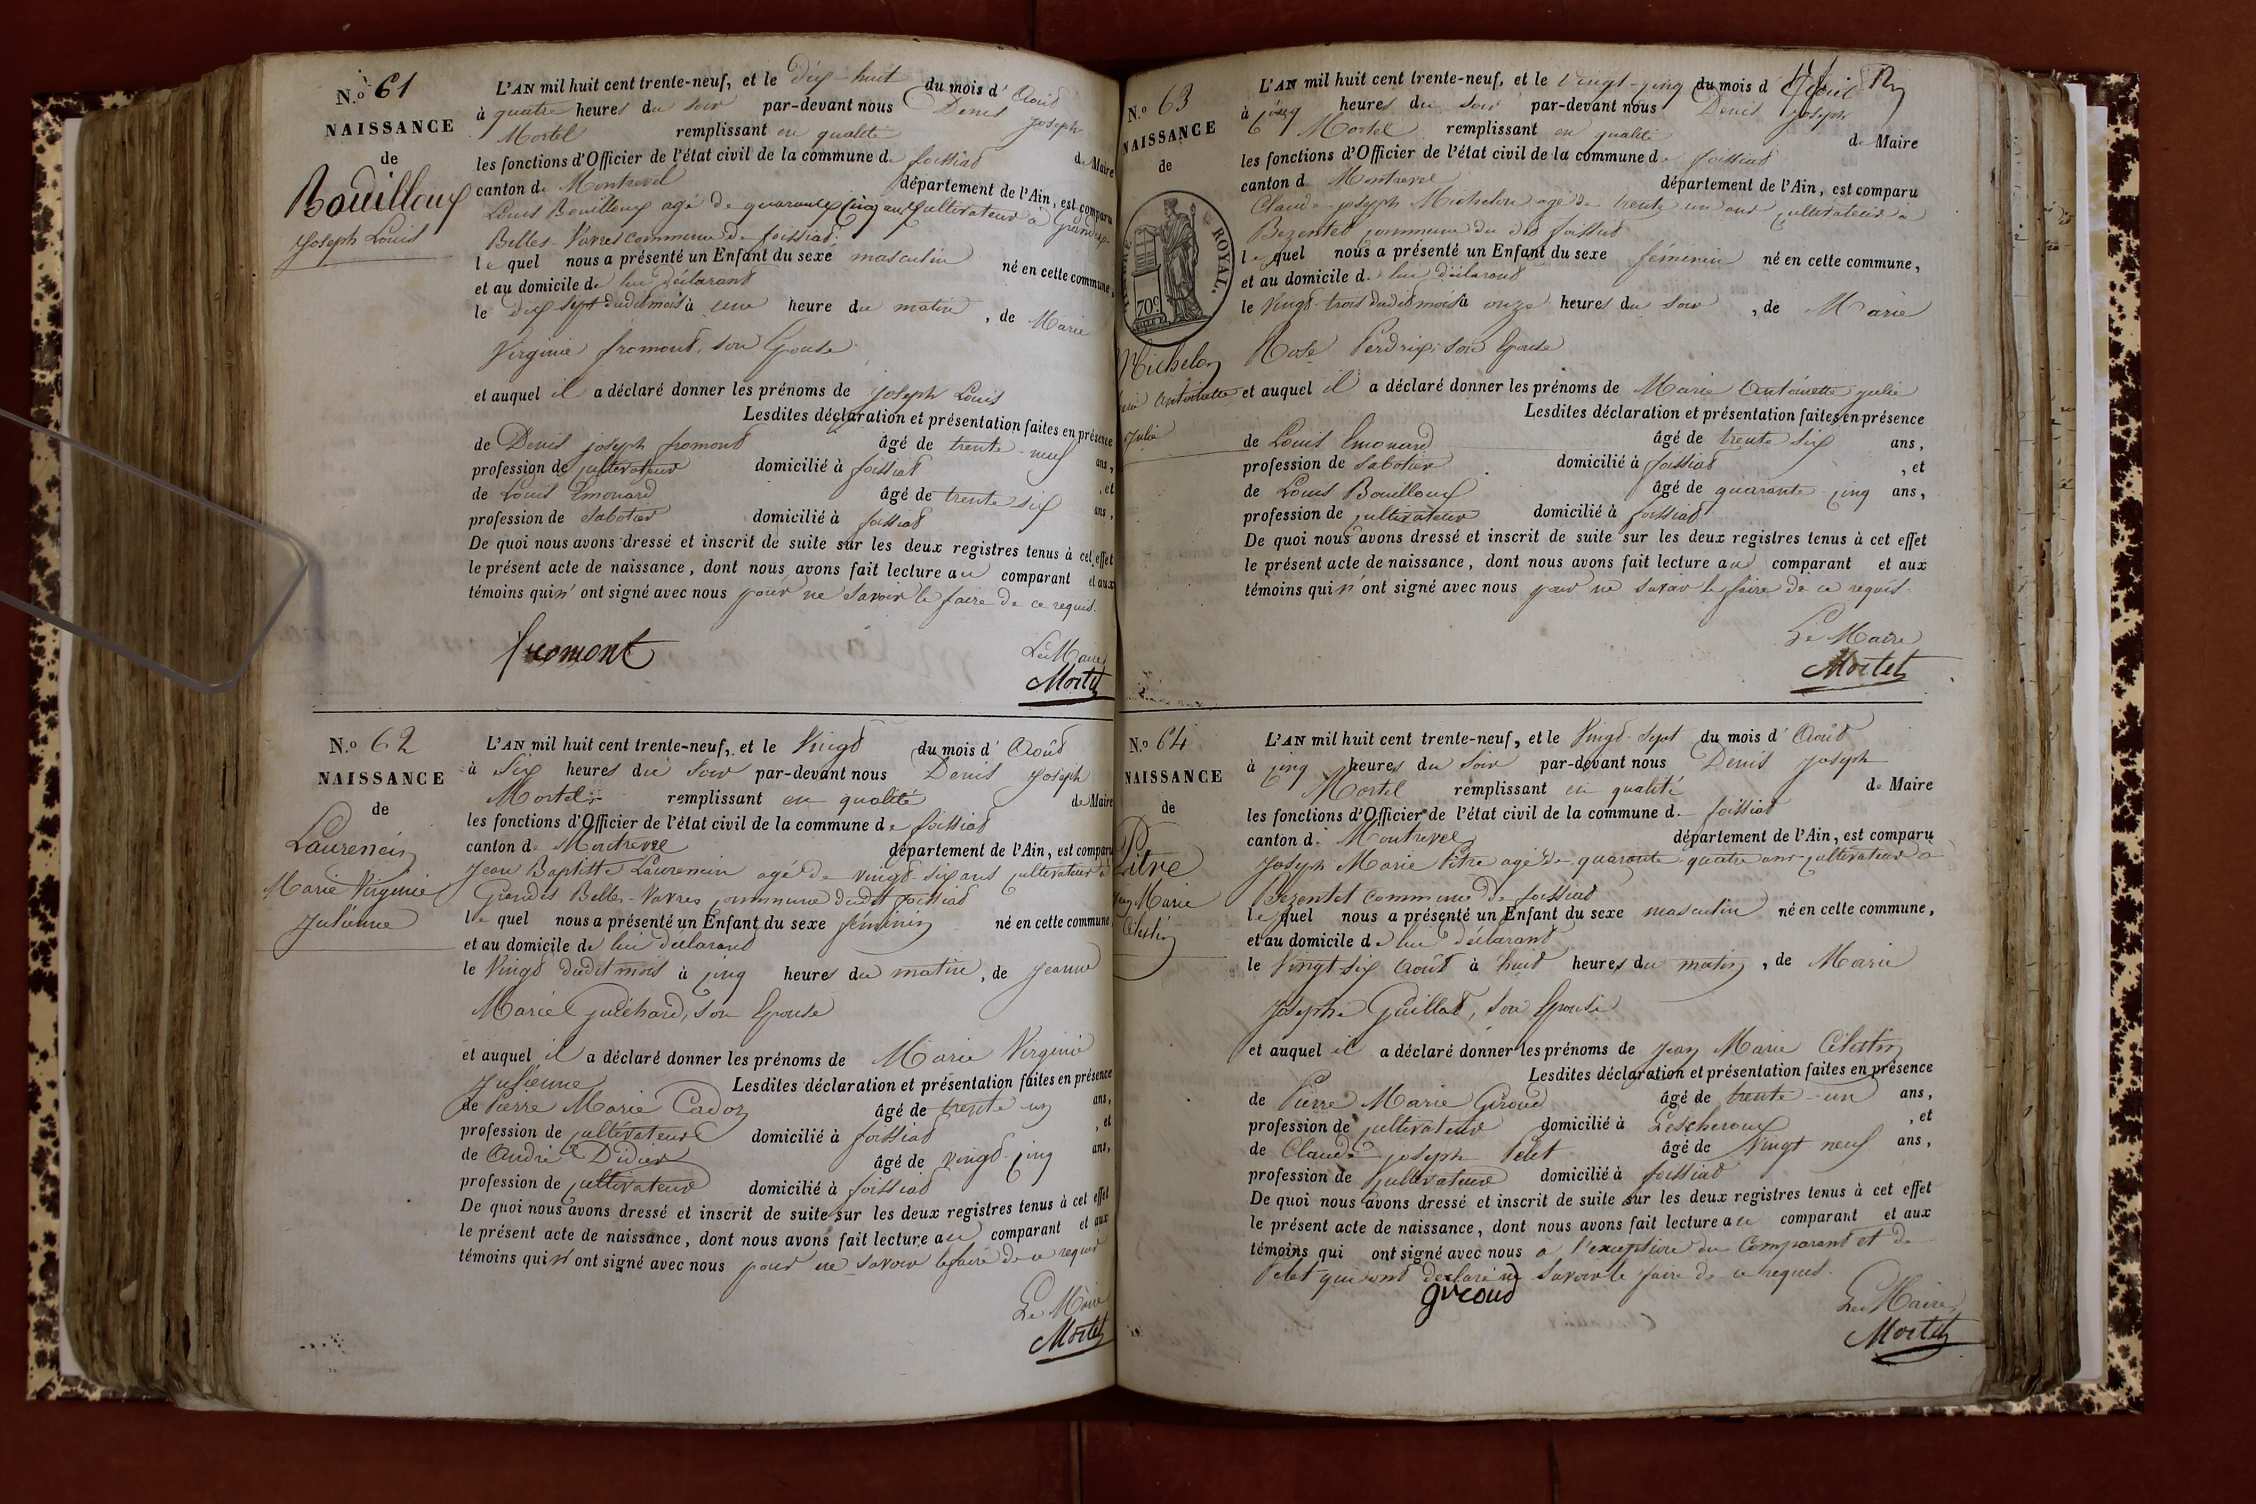 N.o 61
NAISSANCE
de
Bouilloux
Joseph Louis
L'AN mil huit cent trente-neuf, et le dix-huit du mois d'Août
à quatre heures du soir par-devant nous Denis Joseph
Mortel remplissant en qualité de Maire
les fonctions d'Officier de l'état civil de la commune de foissiat
canton de Montrevel département de l'Ain, est comparu
Louis Bouilloux agé de quarante cinq ans cultivateur à Grandes
Belles-Vavres commune de foissiat
le quel nous a présenté un Enfant du sexe masculin né en cette commune,
et au domicile de lui déclarant
le dix sept dudit mois à une heure du matin, de Marie
Virginie fromont, son Epouse
et auquel il a déclaré donner les prénoms de Joseph Louis
Lesdites déclaration et présentation faites en présence
de Denis joseph fromont âgé de trente-neuf ans,
profession de cultivateur domicilié à foissiat, et
de Louis Emonard âgé de trente six ans,
profession de Sabotier domicilié à foissiat
De quoi nous avons dressé et inscrit de suite sur les deux registres tenus à cet effet
le présent acte de naissance, dont nous avons fait lecture au comparant et aux
témoins qui n'ont signé avec nous pour ne savoir le faire de ce requis.
fromont
Le Maire
Mortel
N.o 62
NAISSANCE
de
Laurencin
Marie Virginie
Julienne
L'AN mil huit cent trente-neuf, et le Vingt du mois d'Août
à Six heures du soir par-devant nous Denis Joseph
Mortel remplissant en qualité de Maire
les fonctions d'Officier de l'état civil de la commune de foissiat
canton de Montrevel département de l'Ain, est comparu
Jean Baptiste Laurencin agé de vingt six ans cultivateur à
Grandes Belles-Vavres commune dudit foissiat
le quel nous a présenté un Enfant du sexe féminin né en cette commune,
et au domicile de lui déclarant
le Vingt dudit mois à cinq heures du matin, de Jeanne
Marie Guichard, son Epouse
et auquel il a déclaré donner les prénoms de Marie Virginie
Julienne Lesdites déclaration et présentation faites en présence
de Pierre Marie Cadoz âgé de trente-un ans,
profession de cultivateur domicilié à foissiat, et
de André Didier âgé de vingt-cinq ans,
profession de cultivateur domicilié à foissiat
De quoi nous avons dressé et inscrit de suite sur les deux registres tenus à cet effet
le présent acte de naissance, dont nous avons fait lecture au comparant et aux
témoins qui n'ont signé avec nous pour ne savoir le faire de ce requis
Le Maire
Mortel
N.o 63
NAISSANCE
de
ROYAL.
70c
Michelon
Antoinette
Julie
L'AN mil huit cent trente-neuf, et le vingt-cinq du mois d'Août
à cinq heures du soir par-devant nous Denis Joseph
Mortel remplissant en qualité de Maire
les fonctions d'Officier de l'état civil de la commune de foissiat
canton de Montrevel département de l'Ain, est comparu
Claude joseph Michelon agé de trente un ans cultivateur à
Bezentet commune du dit foissiat
le quel nous a présenté un Enfant du sexe féminin né en cette commune,
et au domicile de lui déclarant
le vingt-trois dudit mois à onze heures du soir, de Marie
Rose Perdrix, son Epouse
et auquel il a déclaré donner les prénoms de Marie Antoinette julie
Lesdites déclaration et présentation faites en présence
de Louis Emonard âgé de trente six ans,
profession de Sabotier domicilié à foissiat, et
de Louis Bouilloux âgé de quarante-cinq ans,
profession de cultivateur domicilié à foissiat
De quoi nous avons dressé et inscrit de suite sur les deux registres tenus à cet effet
le présent acte de naissance, dont nous avons fait lecture au comparant et aux
témoins qui n'ont signé avec nous pour ne savoir le faire de ce requis.
Le Maire
Mortel
N.o 64
NAISSANCE
de
Pitre
Jean Marie
Célestin
L'AN mil huit cent trente-neuf, et le Vingt-Sept du mois d'Août
à cinq heures du soir par-devant nous Denis Joseph
Mortel remplissant en qualité de Maire
les fonctions d'Officier de l'état civil de la commune de foissiat
canton de Montrevel département de l'Ain, est comparu
Joseph Marie Pitre agé de quarante quatre ans cultivateur à
Bezentet commune de foissiat
le quel nous a présenté un Enfant du sexe masculin né en cette commune,
et au domicile de lui déclarant
le Vingt six Août à huit heures du matin, de Marie
Josephe Guillot, son Epouse
et auquel il a déclaré donner les prénoms de Jean Marie Célestin
Lesdites déclaration et présentation faites en présence
de Pierre Marie Giroud âgé de trente-un ans,
profession de cultivateur domicilié à Lescheroux, et
de Claude joseph Pelet âgé de Vingt neuf ans,
profession de cultivateur domicilié à foissiat
De quoi nous avons dressé et inscrit de suite sur les deux registres tenus à cet effet
le présent acte de naissance, dont nous avons fait lecture au comparant et aux
témoins qui ont signé avec nous à l'exception du Comparant et de
Pelet qui ont déclaré ne savoir le faire de ce requis.
giroud
Le Maire
Mortel